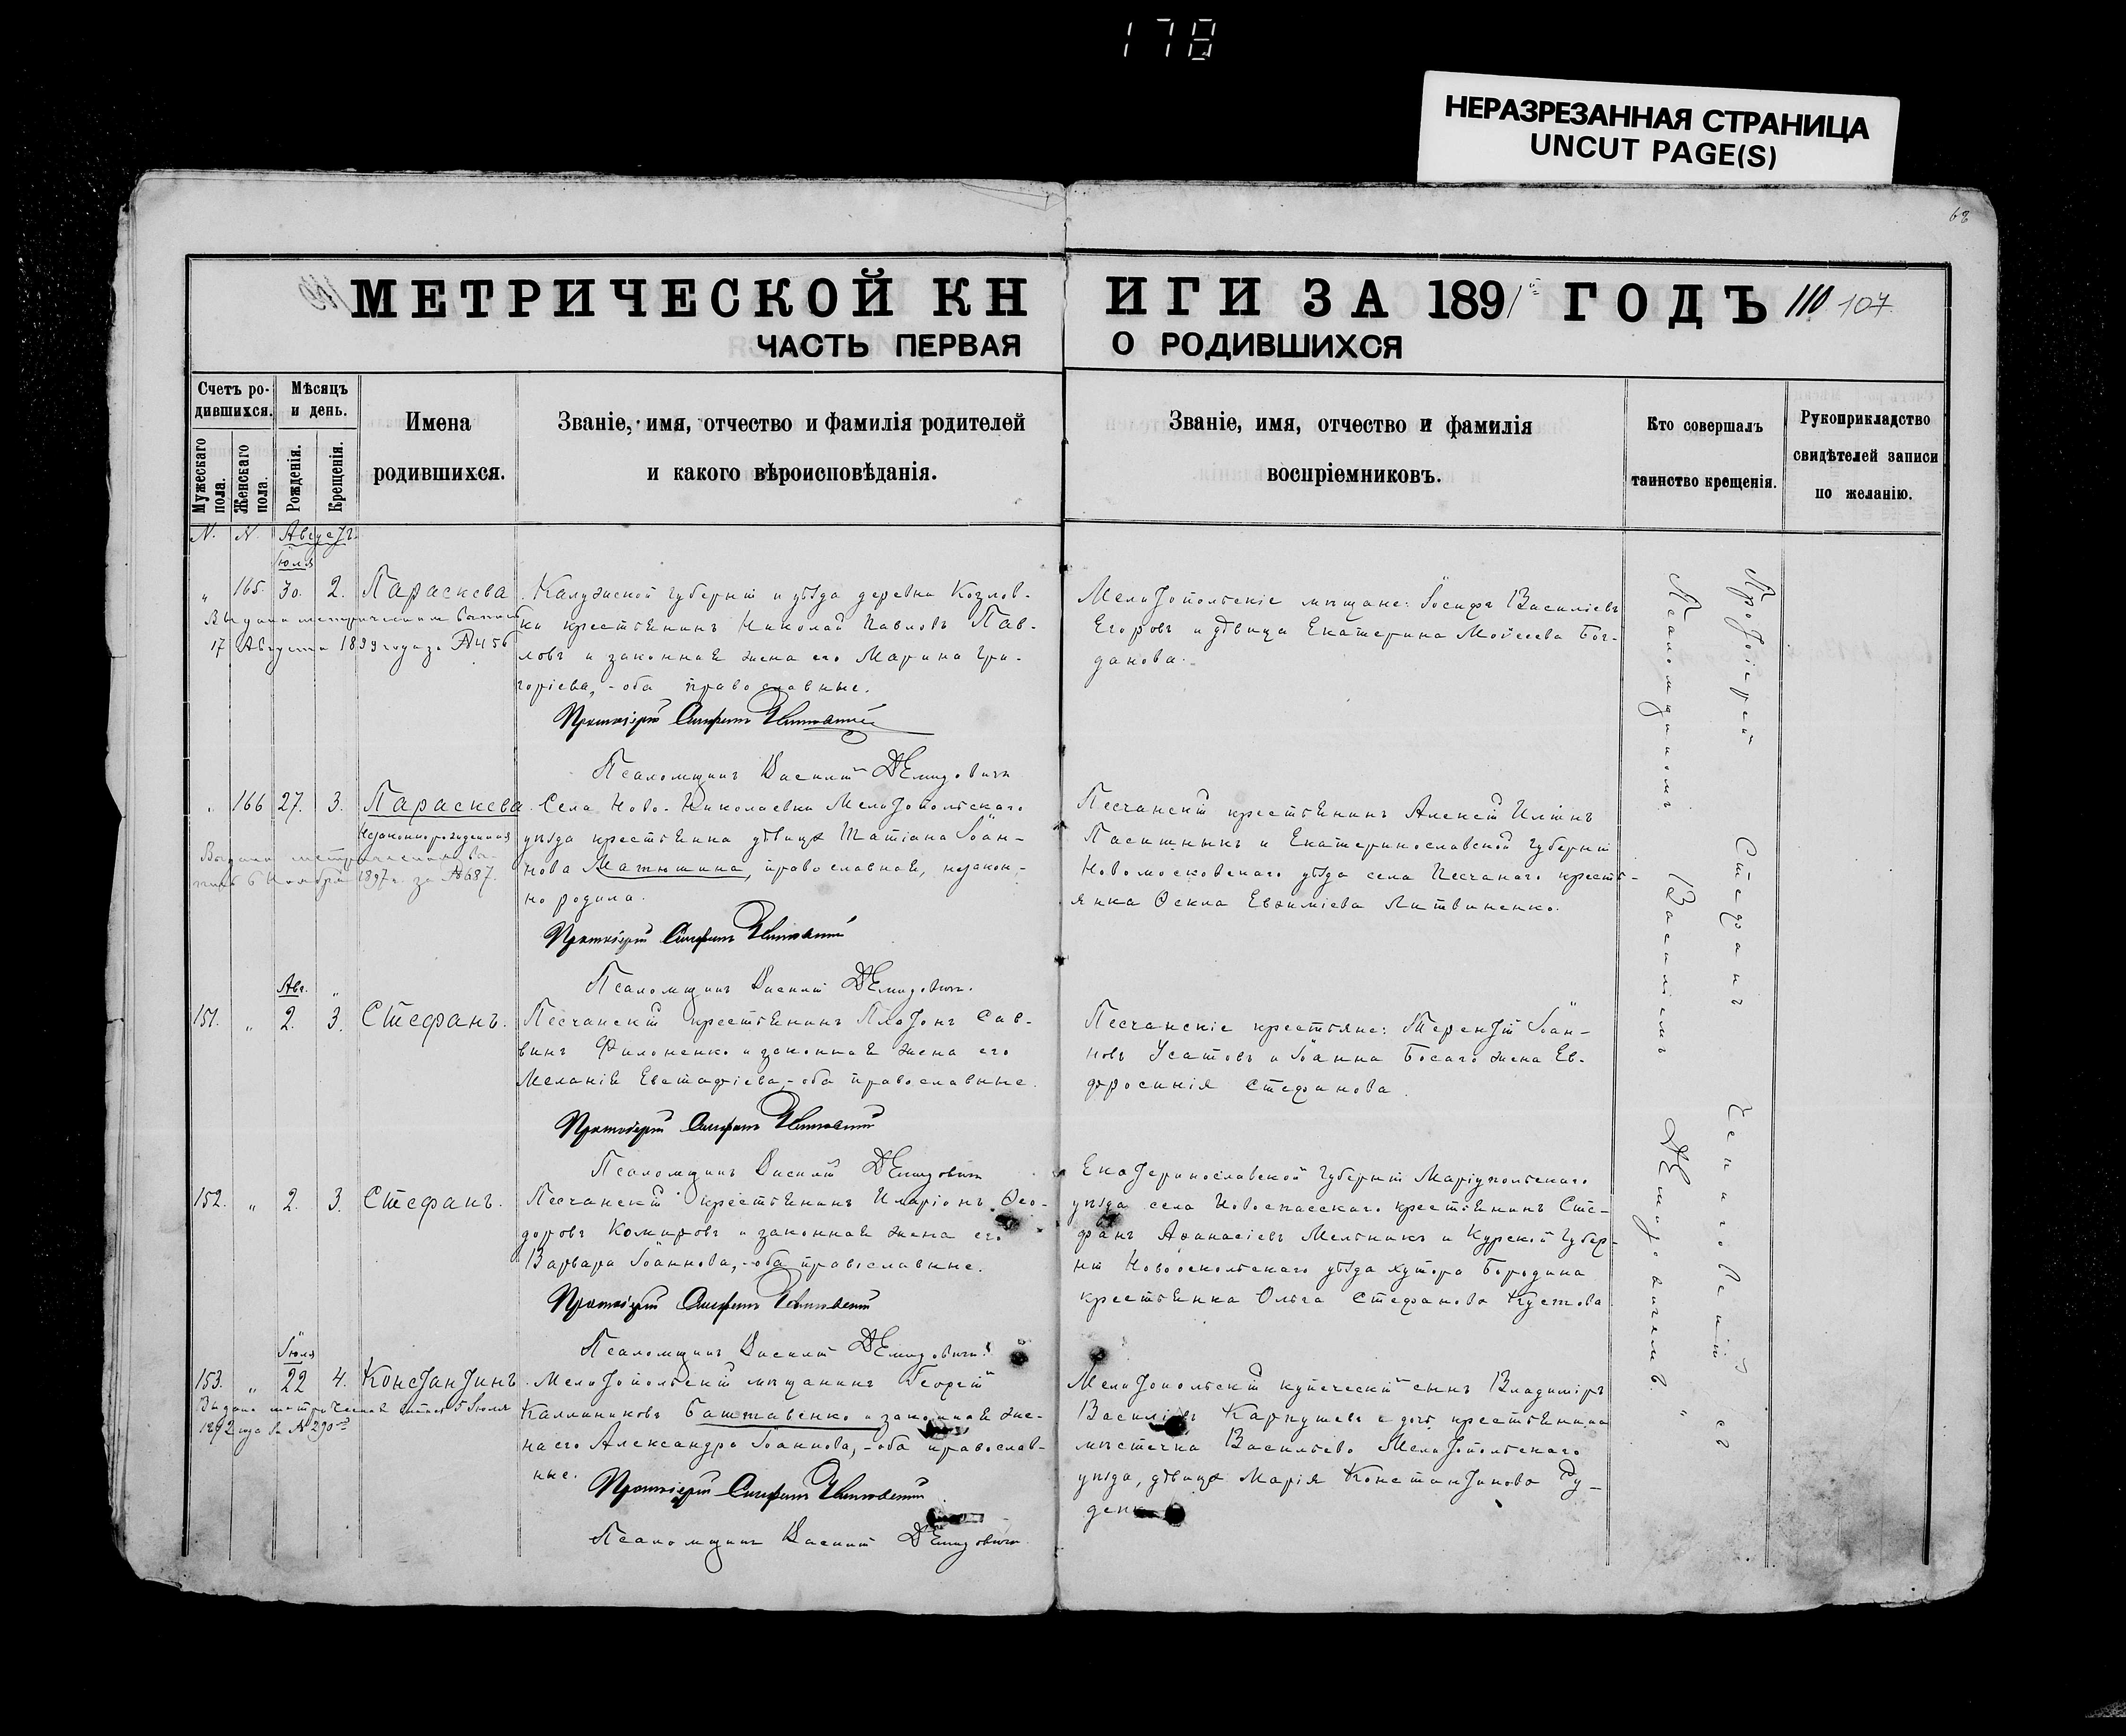 178
НЕРАЗРЕЗАННАЯ СТРАНИЦА
UNCUT PAGE(S)
68
МЕТРИЧЕСКОЙ КНИГИ ЗА 1891 й ГОДЪ 110 107.
ЧАСТЬ ПЕРВАЯ О РОДИВШИХСЯ
Счетъ ро-
дившихся.
Мужескаго пола.
Женскаго пола.
Мѣсяцъ
и день.
Рожденія.
Крещенія.
Имена
родившихся.
Званіе, имя, отчество и фамилія родителей
и какого вѣроисповѣданія.
Званіе, имя, отчество и фамилія
воспріемниковъ.
Кто совершалъ
таинство крещенія.
Рукоприкладство
свидѣтелей записи
по желанію.
N. N. Августъ.
Іюля
" 165. 30. 2. Параскева
Выдана метрическая выпись
17 Августа 1899 года за № 456
Калужской губерніи и уѣзда деревни Козлов-
ки крестьянинъ Николай Павловъ Пав-
ловъ и законная жена его Марина Гри-
горіева, - оба православные.
Протоіерей Стефанъ
Псаломщикъ Василій Демидовичъ
Мелитопольскіе мѣщане: Іосифъ Василіевъ
Егоровъ и дѣвица Екатерина Мойсеева Бог-
данова.
" 166 27. 3. Параскева
Незаконнорожденная
Выдана метрическая вы-
пись 6 Ноября 1897 г. за № 687.
Села Ново-Николаевки Мелитопольскаго
уѣзда крестьянка дѣвица Татіана Іоан-
нова Матюшина, православная, незакон-
но родила.
Протоіерей Стефанъ
Псаломщикъ Василій Демидовичъ.
Песчанскій крестьянинъ Алексій Илiинъ
Пасишныкъ и Екатеринославской губерніи
Новомосковскаго уѣзда села Песчанаго кресть-
янка Ѳекла Евѳиміева Литвиненко.
Авг. "
151. " 2. 3. Стефанъ.
Песчанскій крестьянинъ Платонъ Сав-
винъ Филоненко и законная жена его
Меланія Евстафіева, - оба православные.
Протоіерей Стефанъ
Псаломщикъ Василій Демидовичъ
Песчанскіе крестьяне: Терентій Іоан-
новъ Усатовъ и Іоанна Босаго жена Ев-
фросинія Стефанова.
152. " 2. 3. Стефанъ.
Песчанскій крестьянинъ Иларіонъ Ѳео-
доровъ Комировъ и законная жена его
Варвара Іоаннова, - оба православные.
Протоіерей Стефанъ
Псаломщикъ Василій Демидовичъ.
Екатеринославской губерніи Маріупольскаго
уѣзда села Новоспасскаго крестьянинъ Сте-
фанъ Аѳанасіевъ Мельникъ и Курской губер-
ніи Новооскольскаго уѣзда хутора Бородина
крестьянка Ольга Стефанова Кустова
Іюля
153. " 22 4. Константинъ
Выдана метрическая выпись 5 Іюля
1892 года за № 290
Мелитопольскій мѣщанинъ Георгій
Каллиниковъ Баштавенко и законная же-
на его Александра Іоаннова, - оба православ-
ные.
Протоіерей Стефанъ
Псаломщикъ Василій Демидовичъ
Мелитопольскій купеческій сынъ Владиміръ
Василіевъ и дочь крестьянина
мѣстечка Васильева Мелитопольскаго
уѣзда, дѣвица Марія Константинова
Протоіерей Стефанъ съ
Псаломщикомъ Василіемъ Демидовичемъ.